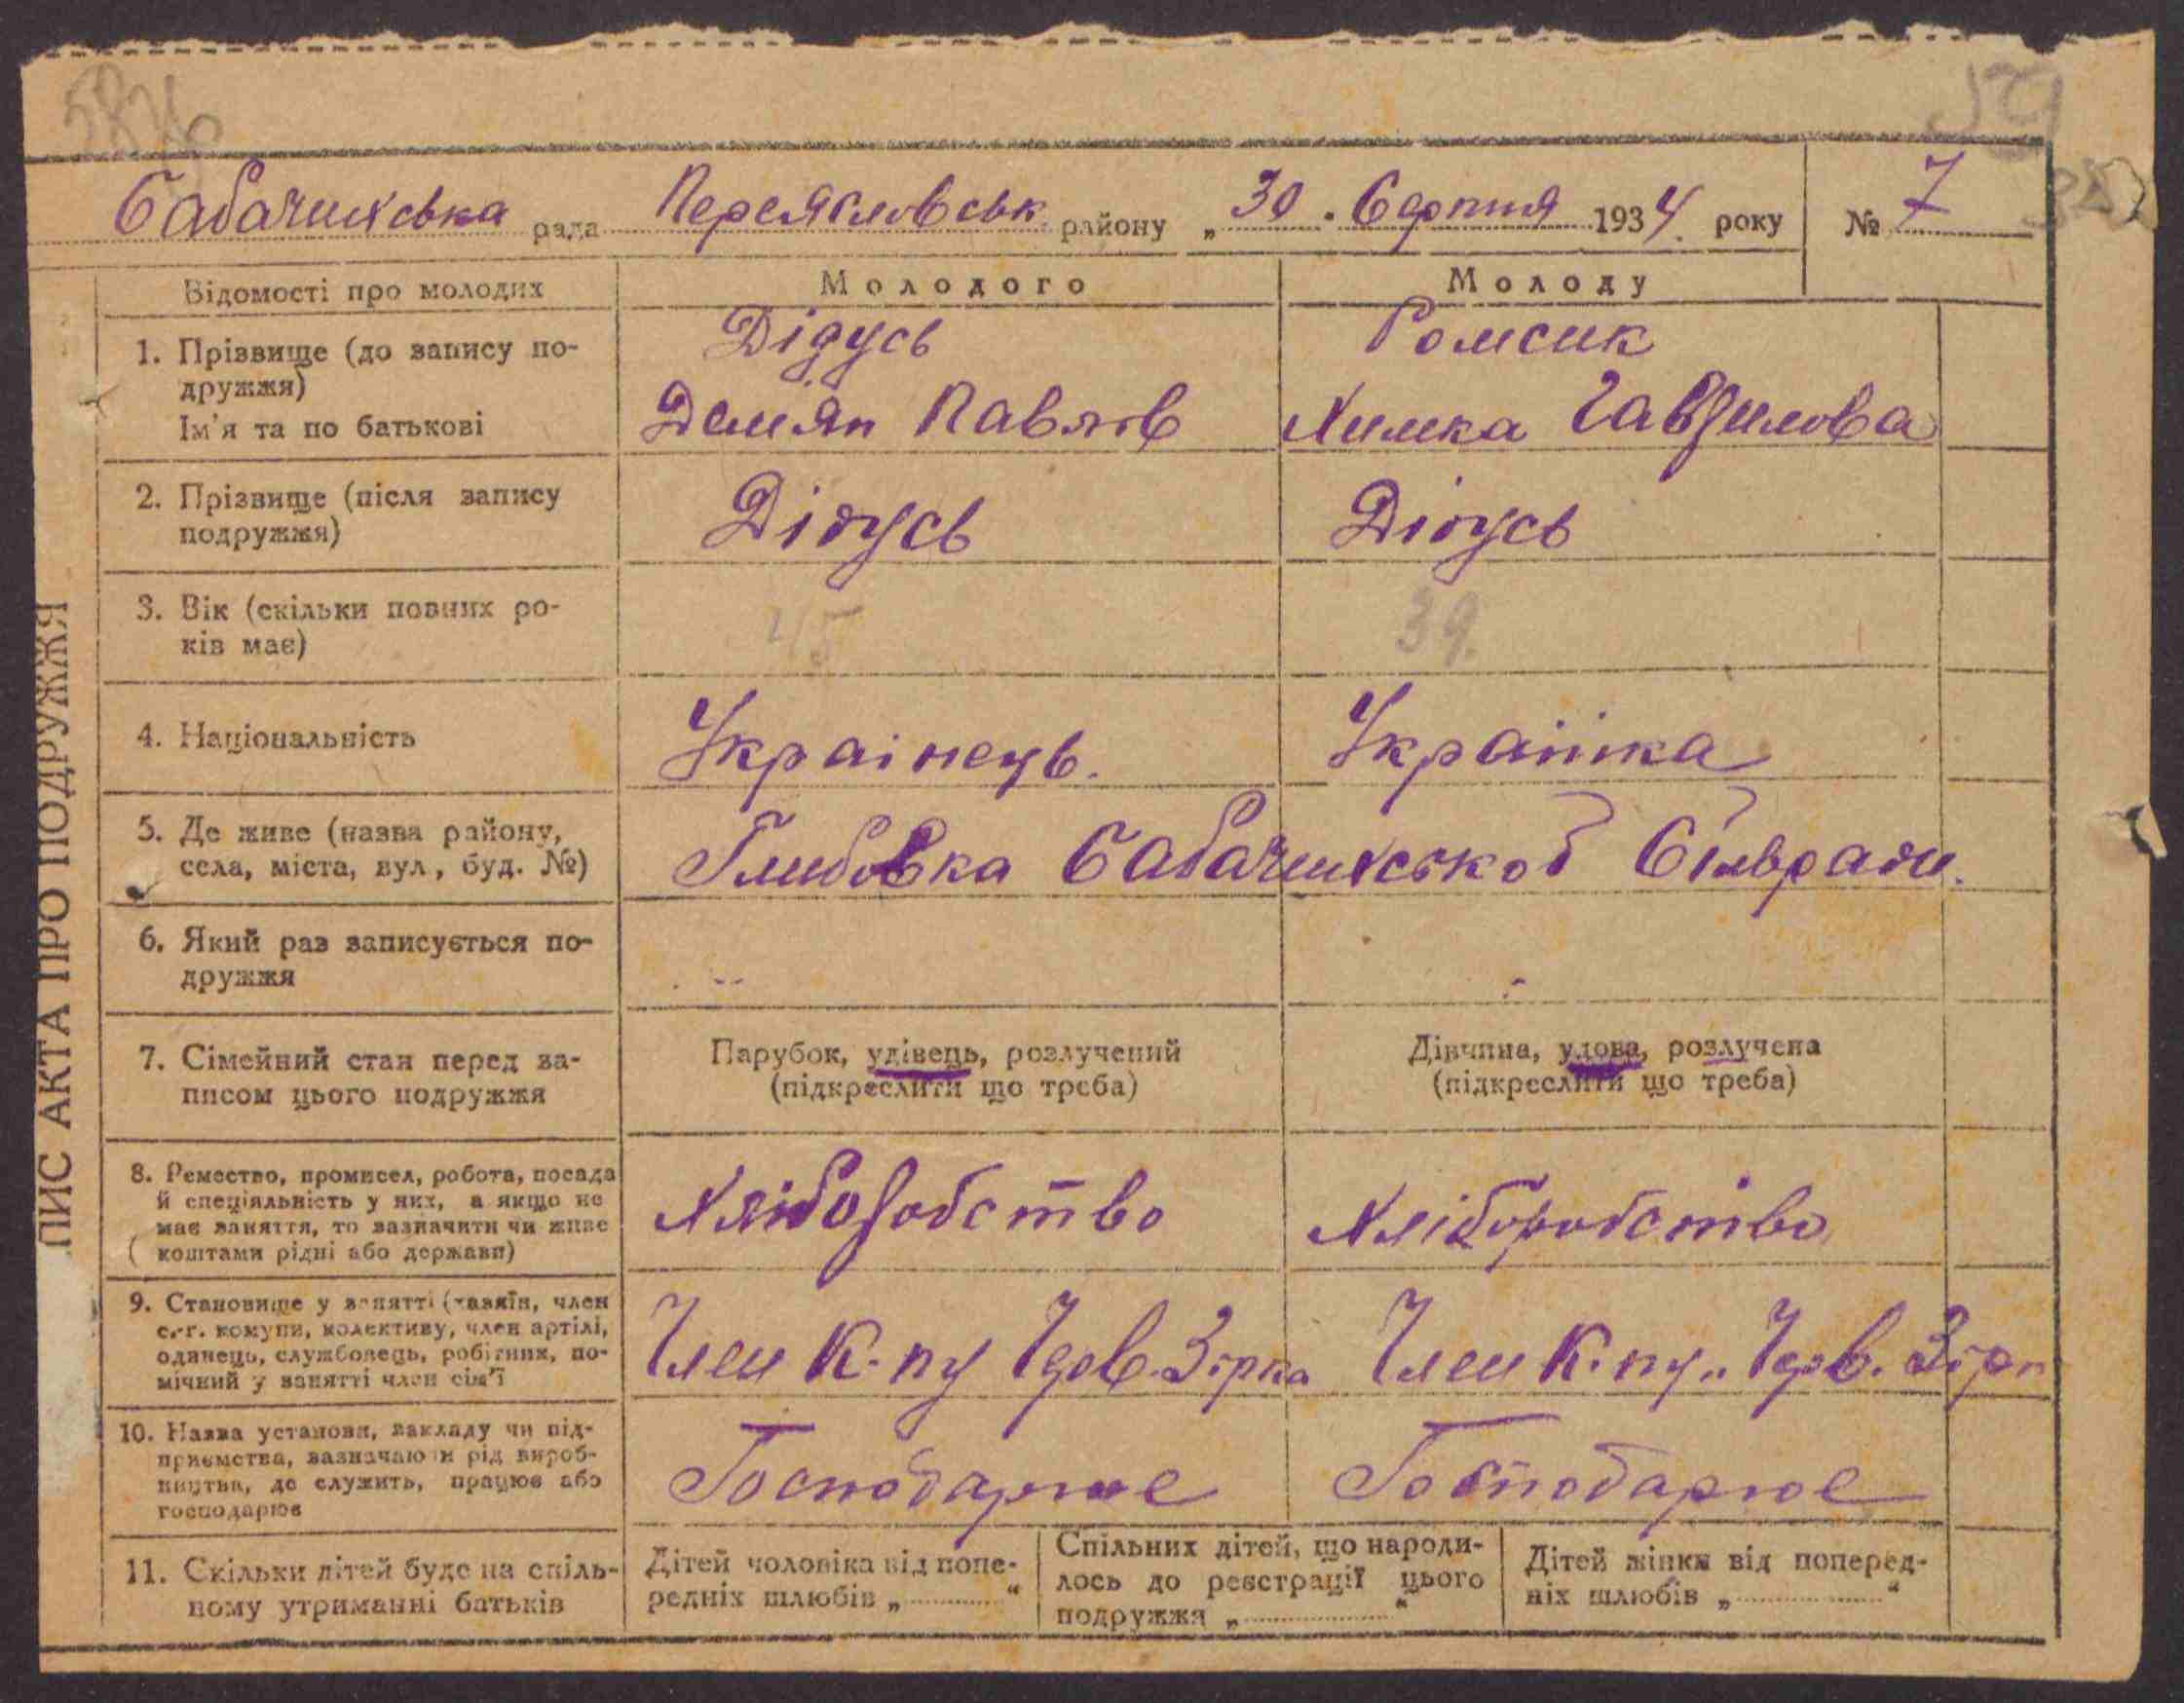 59
Сабачиихська рада Переяславськ району „30. Серпня 1934 року № 7
Відомості про молодих
Молодого
Молоду
1. Прізвище (до запису по-
дружжя)
Ім'я та по батькові
Дідусь
Демян Павлов
Ромсик
Химка Гаврилова
2. Прізвище (після запису
подружжя)
Дідусь
Дідусь
3. Вік (скільки повних ро-
ків має)
45
39.
4. Національність
Украінець.
Украінка
5. Де живе (назва району,
села, міста, вул., буд. №)
Глибовка Сільради.
6. Який раз записується по-
дружжя
7. Сімейний стан перед за-
писом цього подружжя
Парубок, удівець, розлучений
(підкреслити що треба)
Дівчина, удова, розлучена
(підкреслити що треба)
8. Ремество, промисел, робота, посада
й спеціяльність у них, а якщо не
має заняття, то зазначити чи живе
( коштами рідні або держави)
Хліборобство
Хліборобство
9. Становище у занятті (хазяїн, член
с.-г. комуни, колективу, член артілі,
одинець, службовець, робітник, по-
мічний у занятті член сім'ї
Член К-пу Чрв. Зірка
Член К-пу „Чрв. Зірк
10. Назва установи, закладу чи під-
приємства, зазначаючи рід вироб-
ництва, де служить, працює або
господарює
Господарює
Господарює
11. Скільки дітей буде на спіль-
ному утриманні батьків
Дітей чоловіка від попе-
редніх шлюбів „ “
Спільних дітей, що народи-
лось до реєстрації цього
подружжя „ “
Дітей жінки від поперед-
ніх шлюбів „ “
ПИС АКТА ПРО ПОДРУЖЖЯ